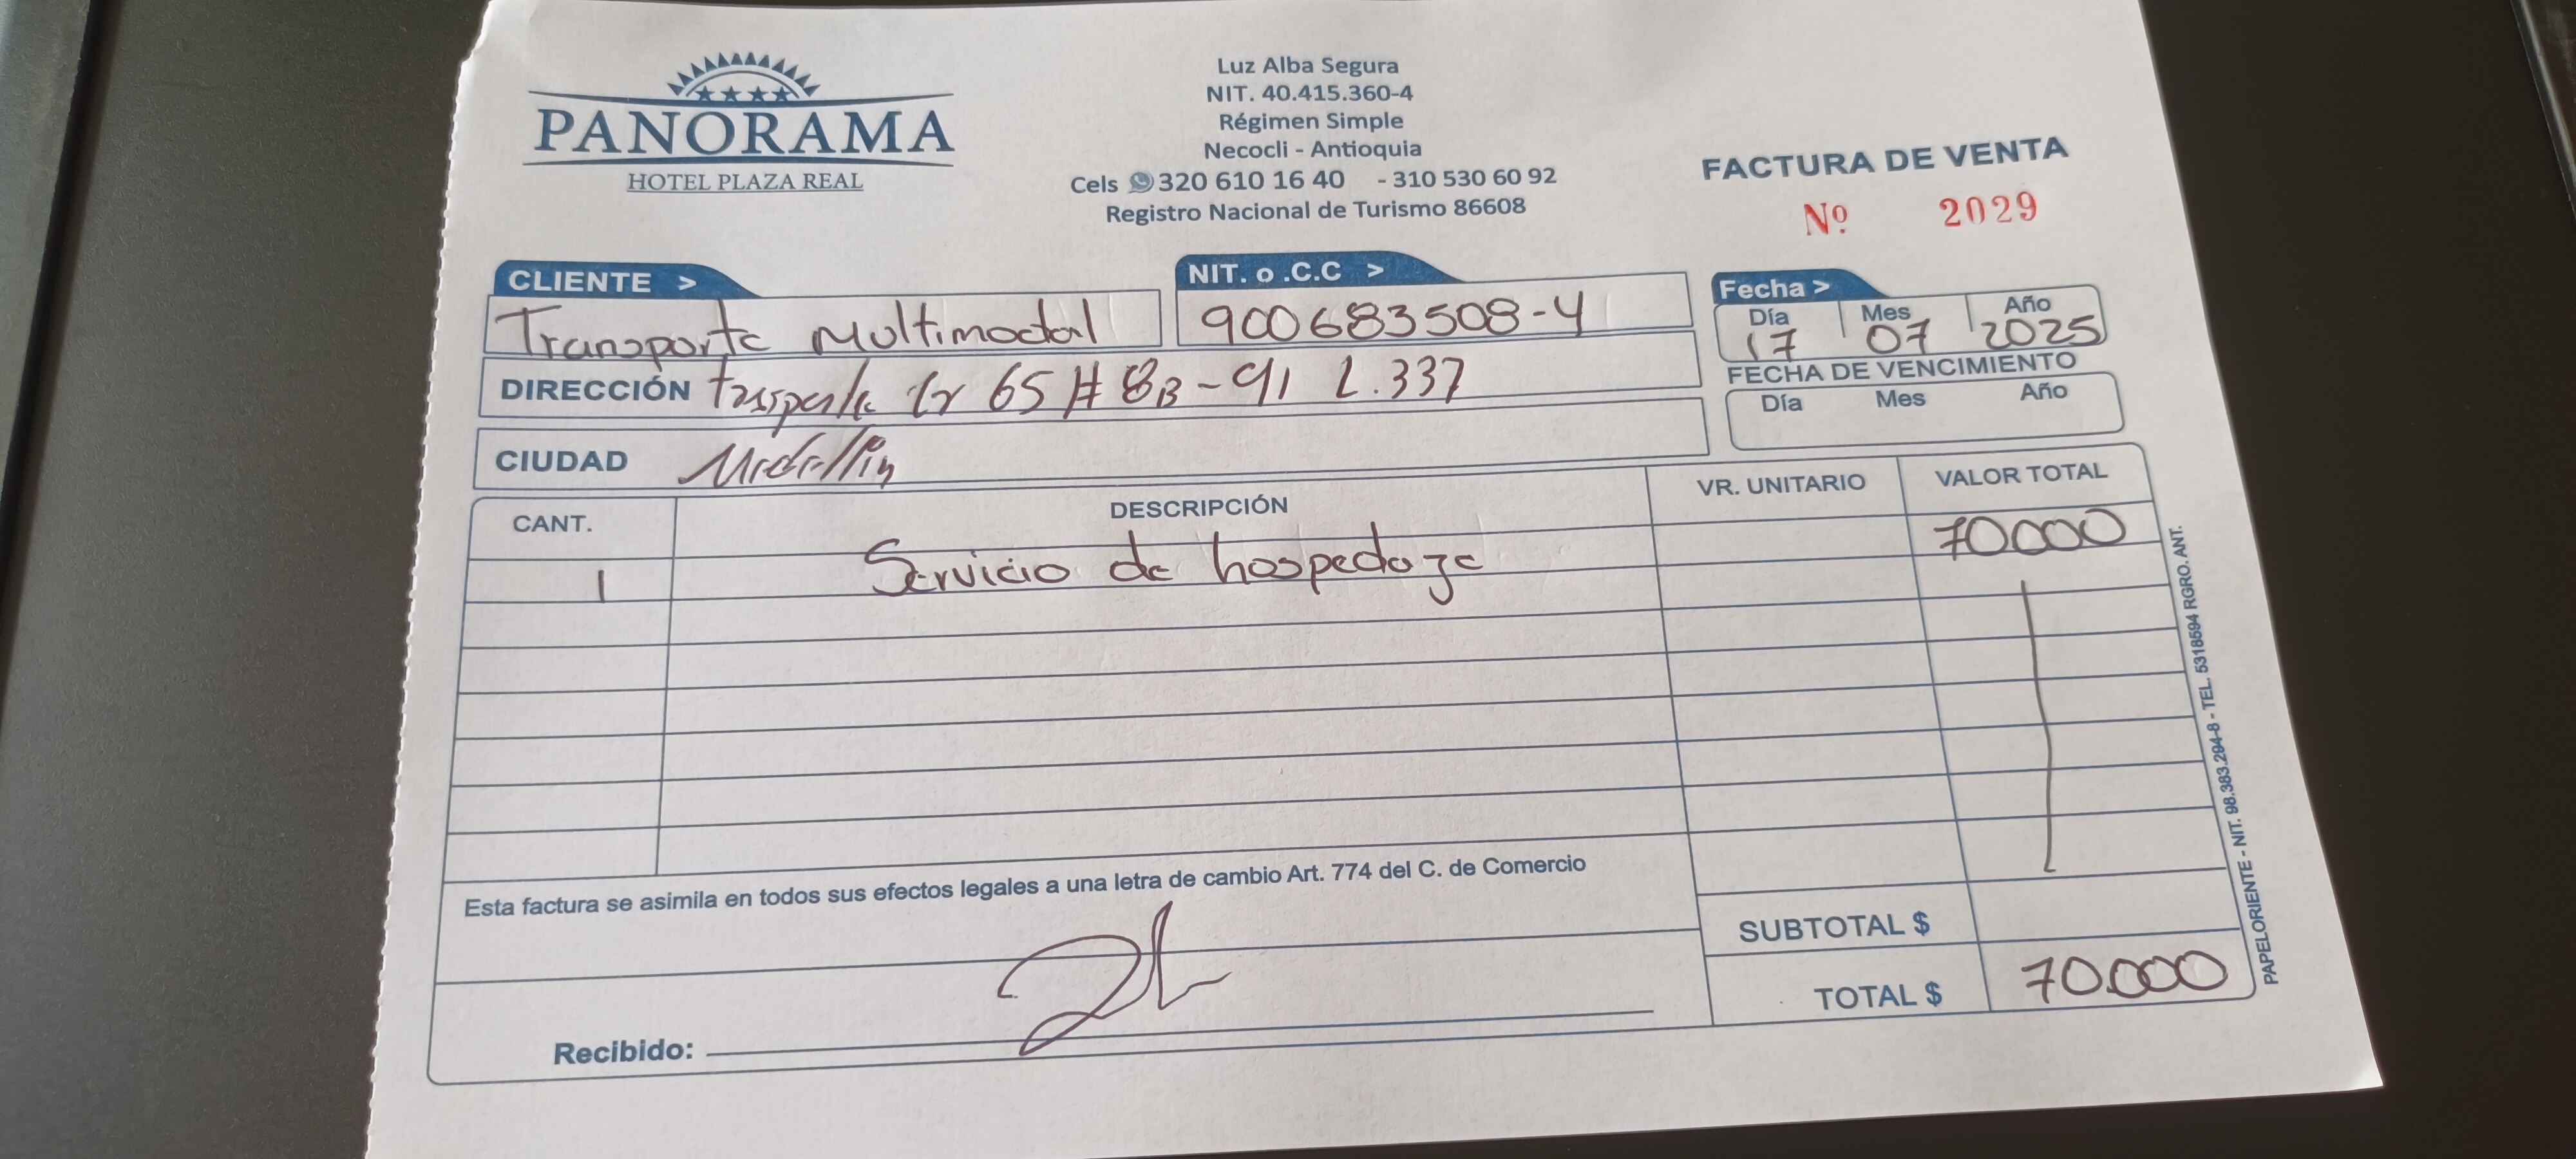 PANORAMA
HOTEL PLAZA REAL
Luz Alba Segura
NIT. 40.415.360-4
Régimen Simple
Necocli - Antioquia
Cels 320 610 16 40 - 310 530 60 92
Registro Nacional de Turismo 86608
FACTURA DE VENTA
Nº 2029
CLIENTE >
Transporte Multimodal
NIT. o .C.C >
900683508-4
Fecha >
Día Mes Año
17 07 2025
FECHA DE VENCIMIENTO
Día Mes Año
DIRECCIÓN Cr 65 # 8B-91 L.337
CIUDAD Medellin
CANT. DESCRIPCIÓN VR. UNITARIO VALOR TOTAL
1 Servicio de hospedaje 70000
Esta factura se asimila en todos sus efectos legales a una letra de cambio Art. 774 del C. de Comercio
SUBTOTAL $
TOTAL $ 70.000
Recibido:
PAPELORIENTE - NIT. 98.383.294-8 - TEL. 5318594 RGRO. ANT.